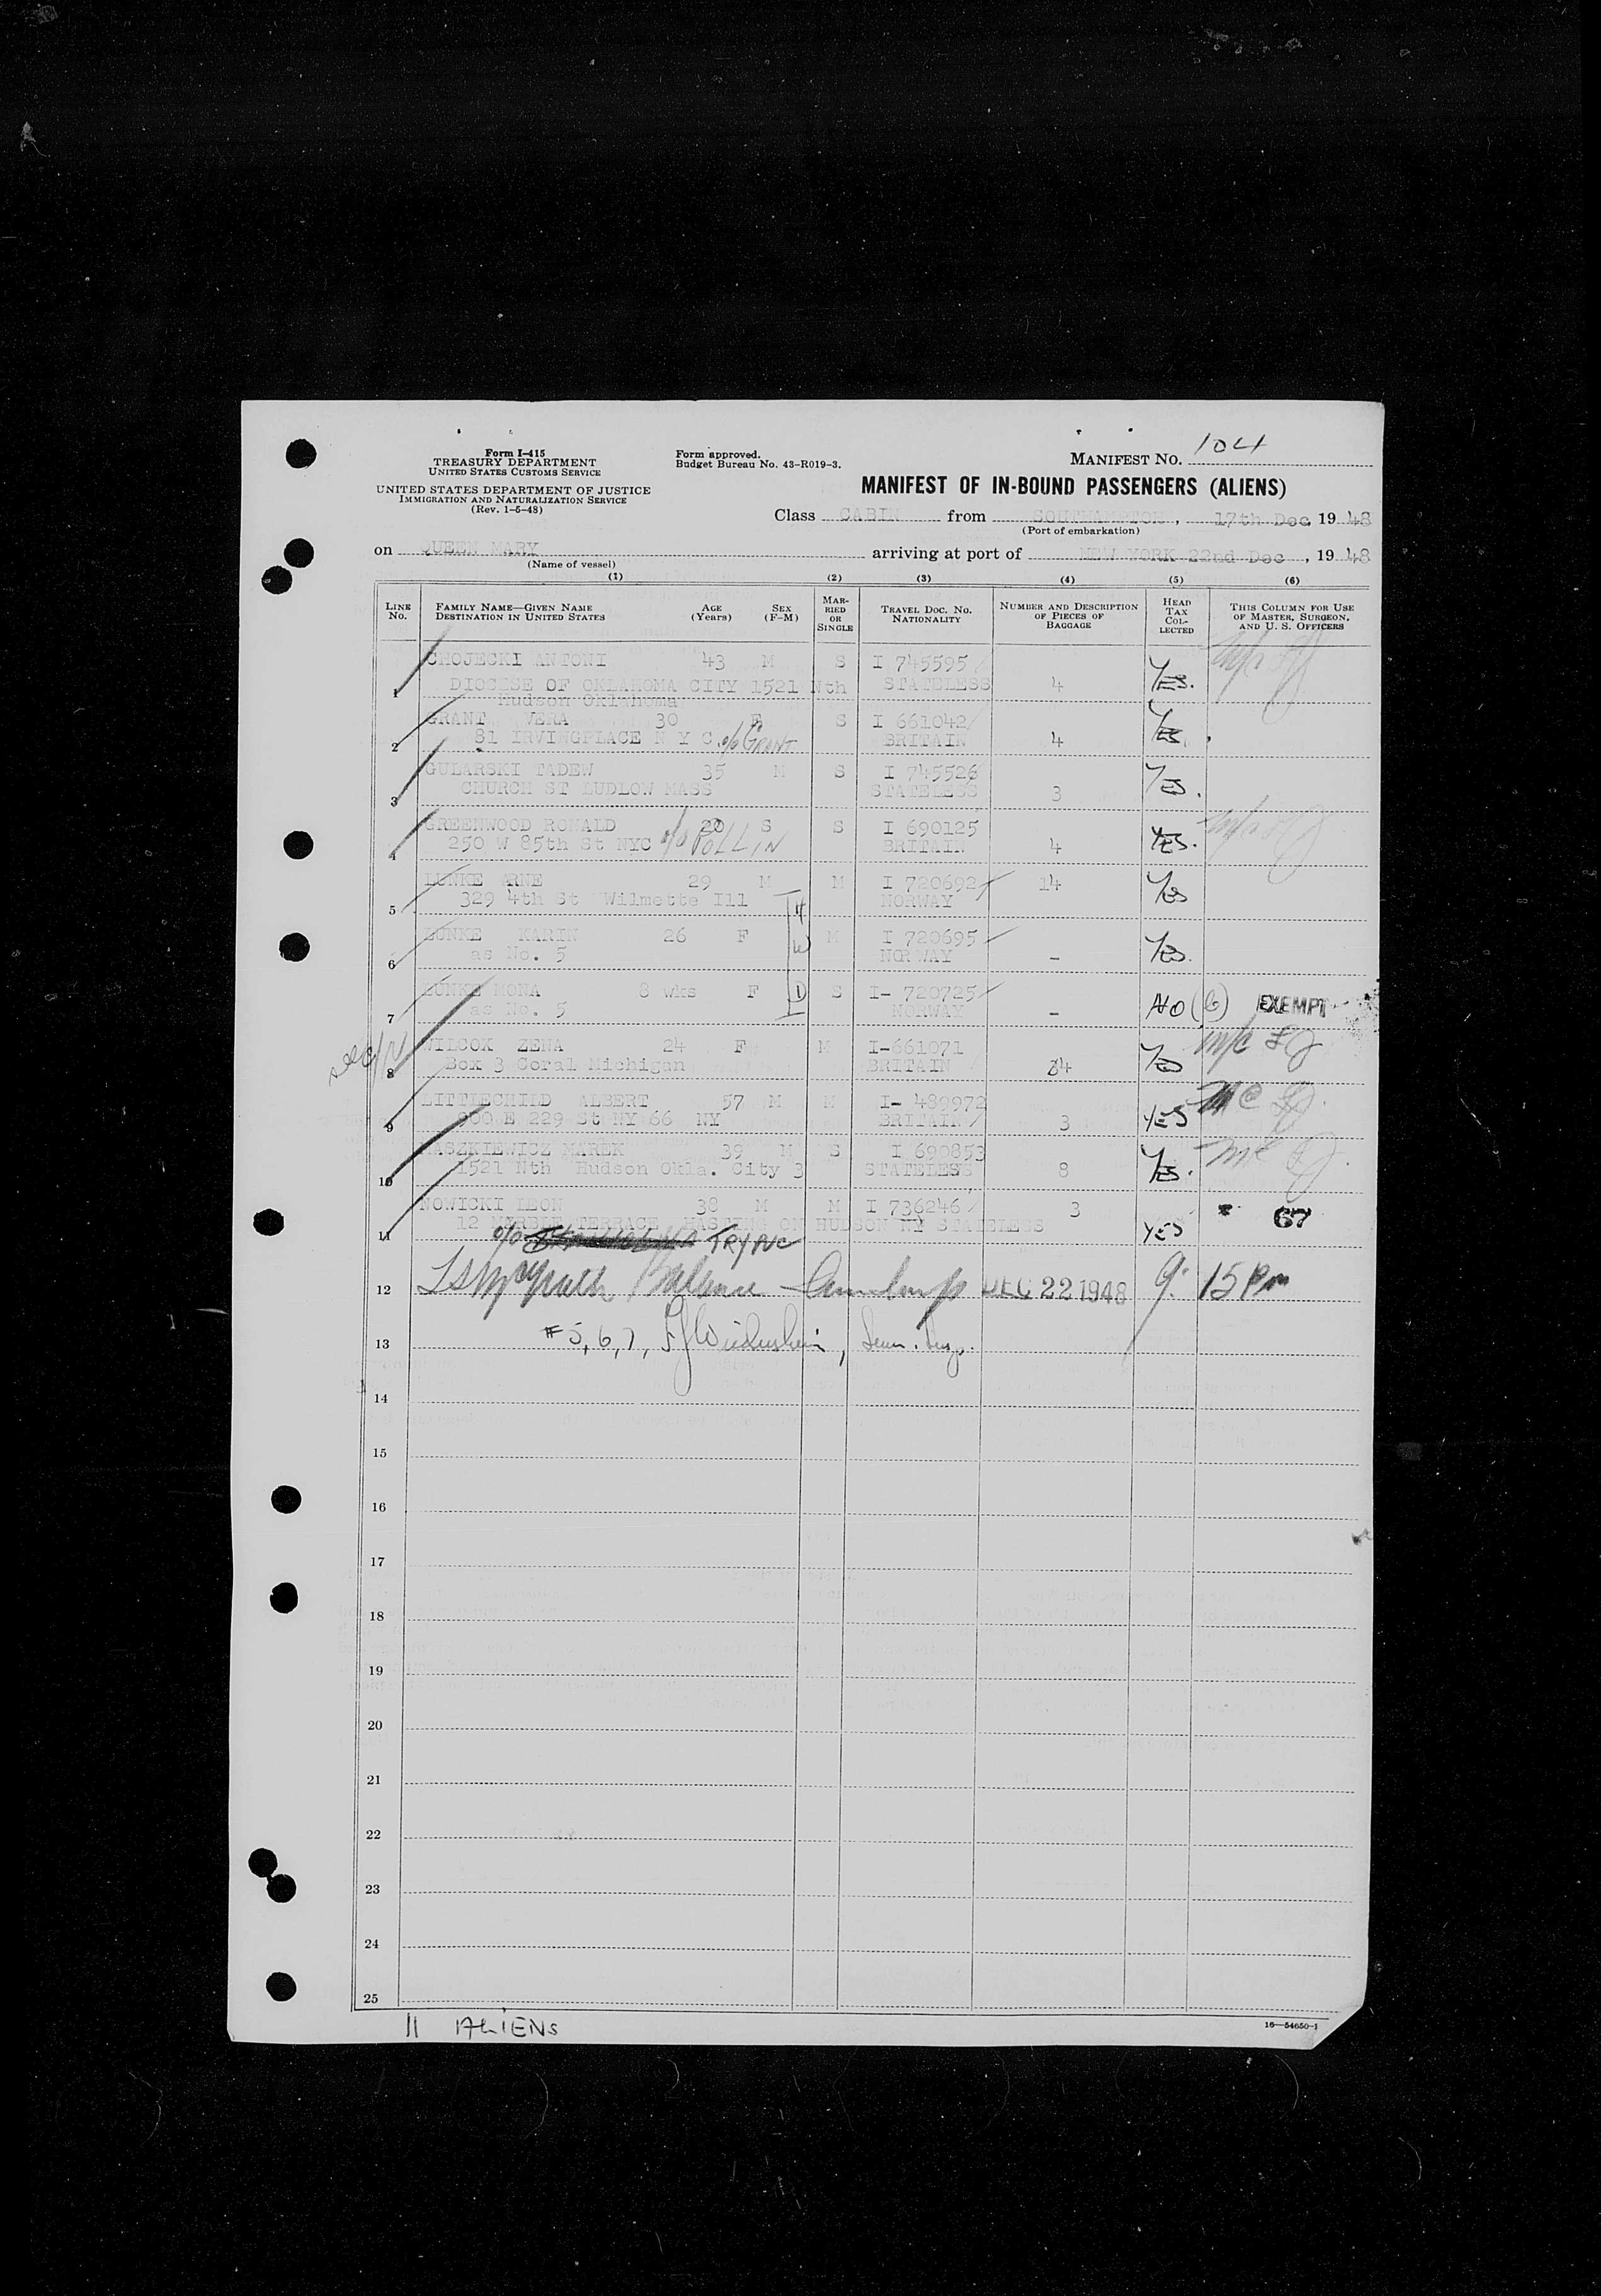 Form I-415
TREASURY DEPARTMENT
UNITED STATES CUSTOMS SERVICE
UNITED STATES DEPARTMENT OF JUSTICE
IMMIGRATION AND NATURALIZATION SERVICE
(Rev. 1-5-48)
Form approved.
Budget Bureau No. 43-R019-3.
MANIFEST NO. 104
MANIFEST OF IN-BOUND PASSENGERS (ALIENS)
Class CABIN from SOUTHAMPTON, 17th Dec, 19 48
(Port of embarkation)
on QUEEN MARY arriving at port of NEW YORK 22nd Dec, 19 48
(Name of vessel)
(1) (2) (3) (4) (5) (6)
LINE No. FAMILY NAME—GIVEN NAME DESTINATION IN UNITED STATES AGE (Years) SEX (F-M) MARRIED OR SINGLE TRAVEL DOC. NO. NATIONALITY NUMBER AND DESCRIPTION OF PIECES OF BAGGAGE HEAD TAX COLLECTED THIS COLUMN FOR USE OF MASTER, SURGEON, AND U. S. OFFICERS
CHOJECKI ANTONI 43 M S I 745595
1 DIOCISE OF OKLAHOMA CITY 1521 Nth STATELESS 4 YES.
Hudson Oklahoma
GRANT VERA 30 F S I 661042
2 81 IRVINGPLACE N Y C c/o GRANT BRITAIN 4 YES.
GULARSKI TADEW 35 M S I 745526
3 CHURCH ST LUDLOW MASS STATELESS 3 YES.
GREENWOOD RONALD 20 S S I 690125
4 250 W 85th St NYC c/o POLLIN BRITAIN 4 YES.
LUNKE ARNE 29 M M I 720692 14
5 329 4th St Wilmette Ill H NORWAY Yes
LUNKE KARIN 26 F M I 720695
6 as No. 5 W NORWAY - Yes.
LUNKE MONA 8 wks F D S I- 720725
7 as No. 5 NORWAY - NO (6) EXEMPT
WILCOX ZENA 24 F M I-661071 m/c
8 Box 3 Coral Michigan BRITAIN 34 Yes
LITTLECHILD ALBERT 57 M M I- 489972 MC
9 900 E 229 St NY 66 NY BRITAIN 3 YES
MASZKIEWICZ MAREK 39 M S I 690853 mc
10 1521 Nth Hudson Okla. City 3 STATELESS 8 Yes.
NOWICKI LEON 38 M M I 736246 3 67
11 12 TERRACE HASTING ON HUDSON NY STATELESS YES
c/o TRYPUC
12 DEC 22 1948 9:15 Pm
13 #5, 6, 7,
14
15
16
17
18
19
20
21
22
23
24
25
11 ALIENS
16—54650-1